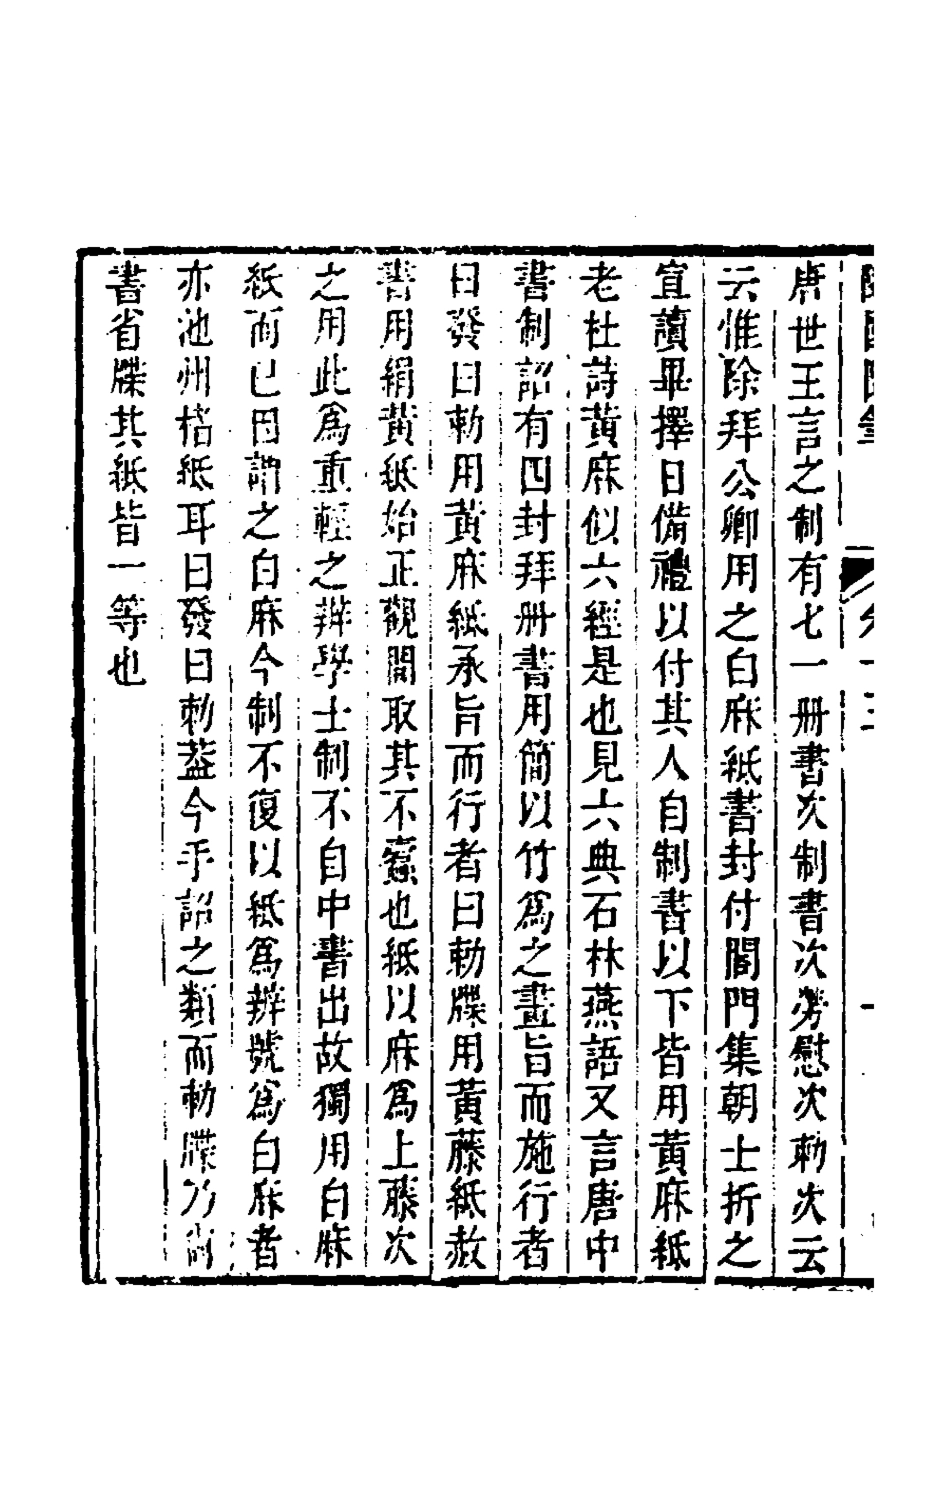 唐世王言之制有七一冊書次制書次勞慰次勑次云
云惟除拜公卿用之白麻紙書封付閤門集朝士折之
宣讀畢擇日備禮以付其人自制書以下皆用黃麻紙
老杜詩黃麻似六經是也見六典石林燕語又言唐中
書制詔有四封拜冊書用簡以竹爲之畫旨而施行者
曰發曰勑用黃麻紙承旨而行者曰勑牒用黃藤紙赦
書用絹黃紙始正觀間取其不蠹也紙以麻爲上藤次
之用此爲重輕之辨學士制不自中書出故獨用白麻
紙而已因謂之白麻今制不復以紙爲辨號爲白麻者
亦池州楮紙耳曰發曰勑蓋今手詔之類而勑牒乃尚
書省牒其紙皆一等也